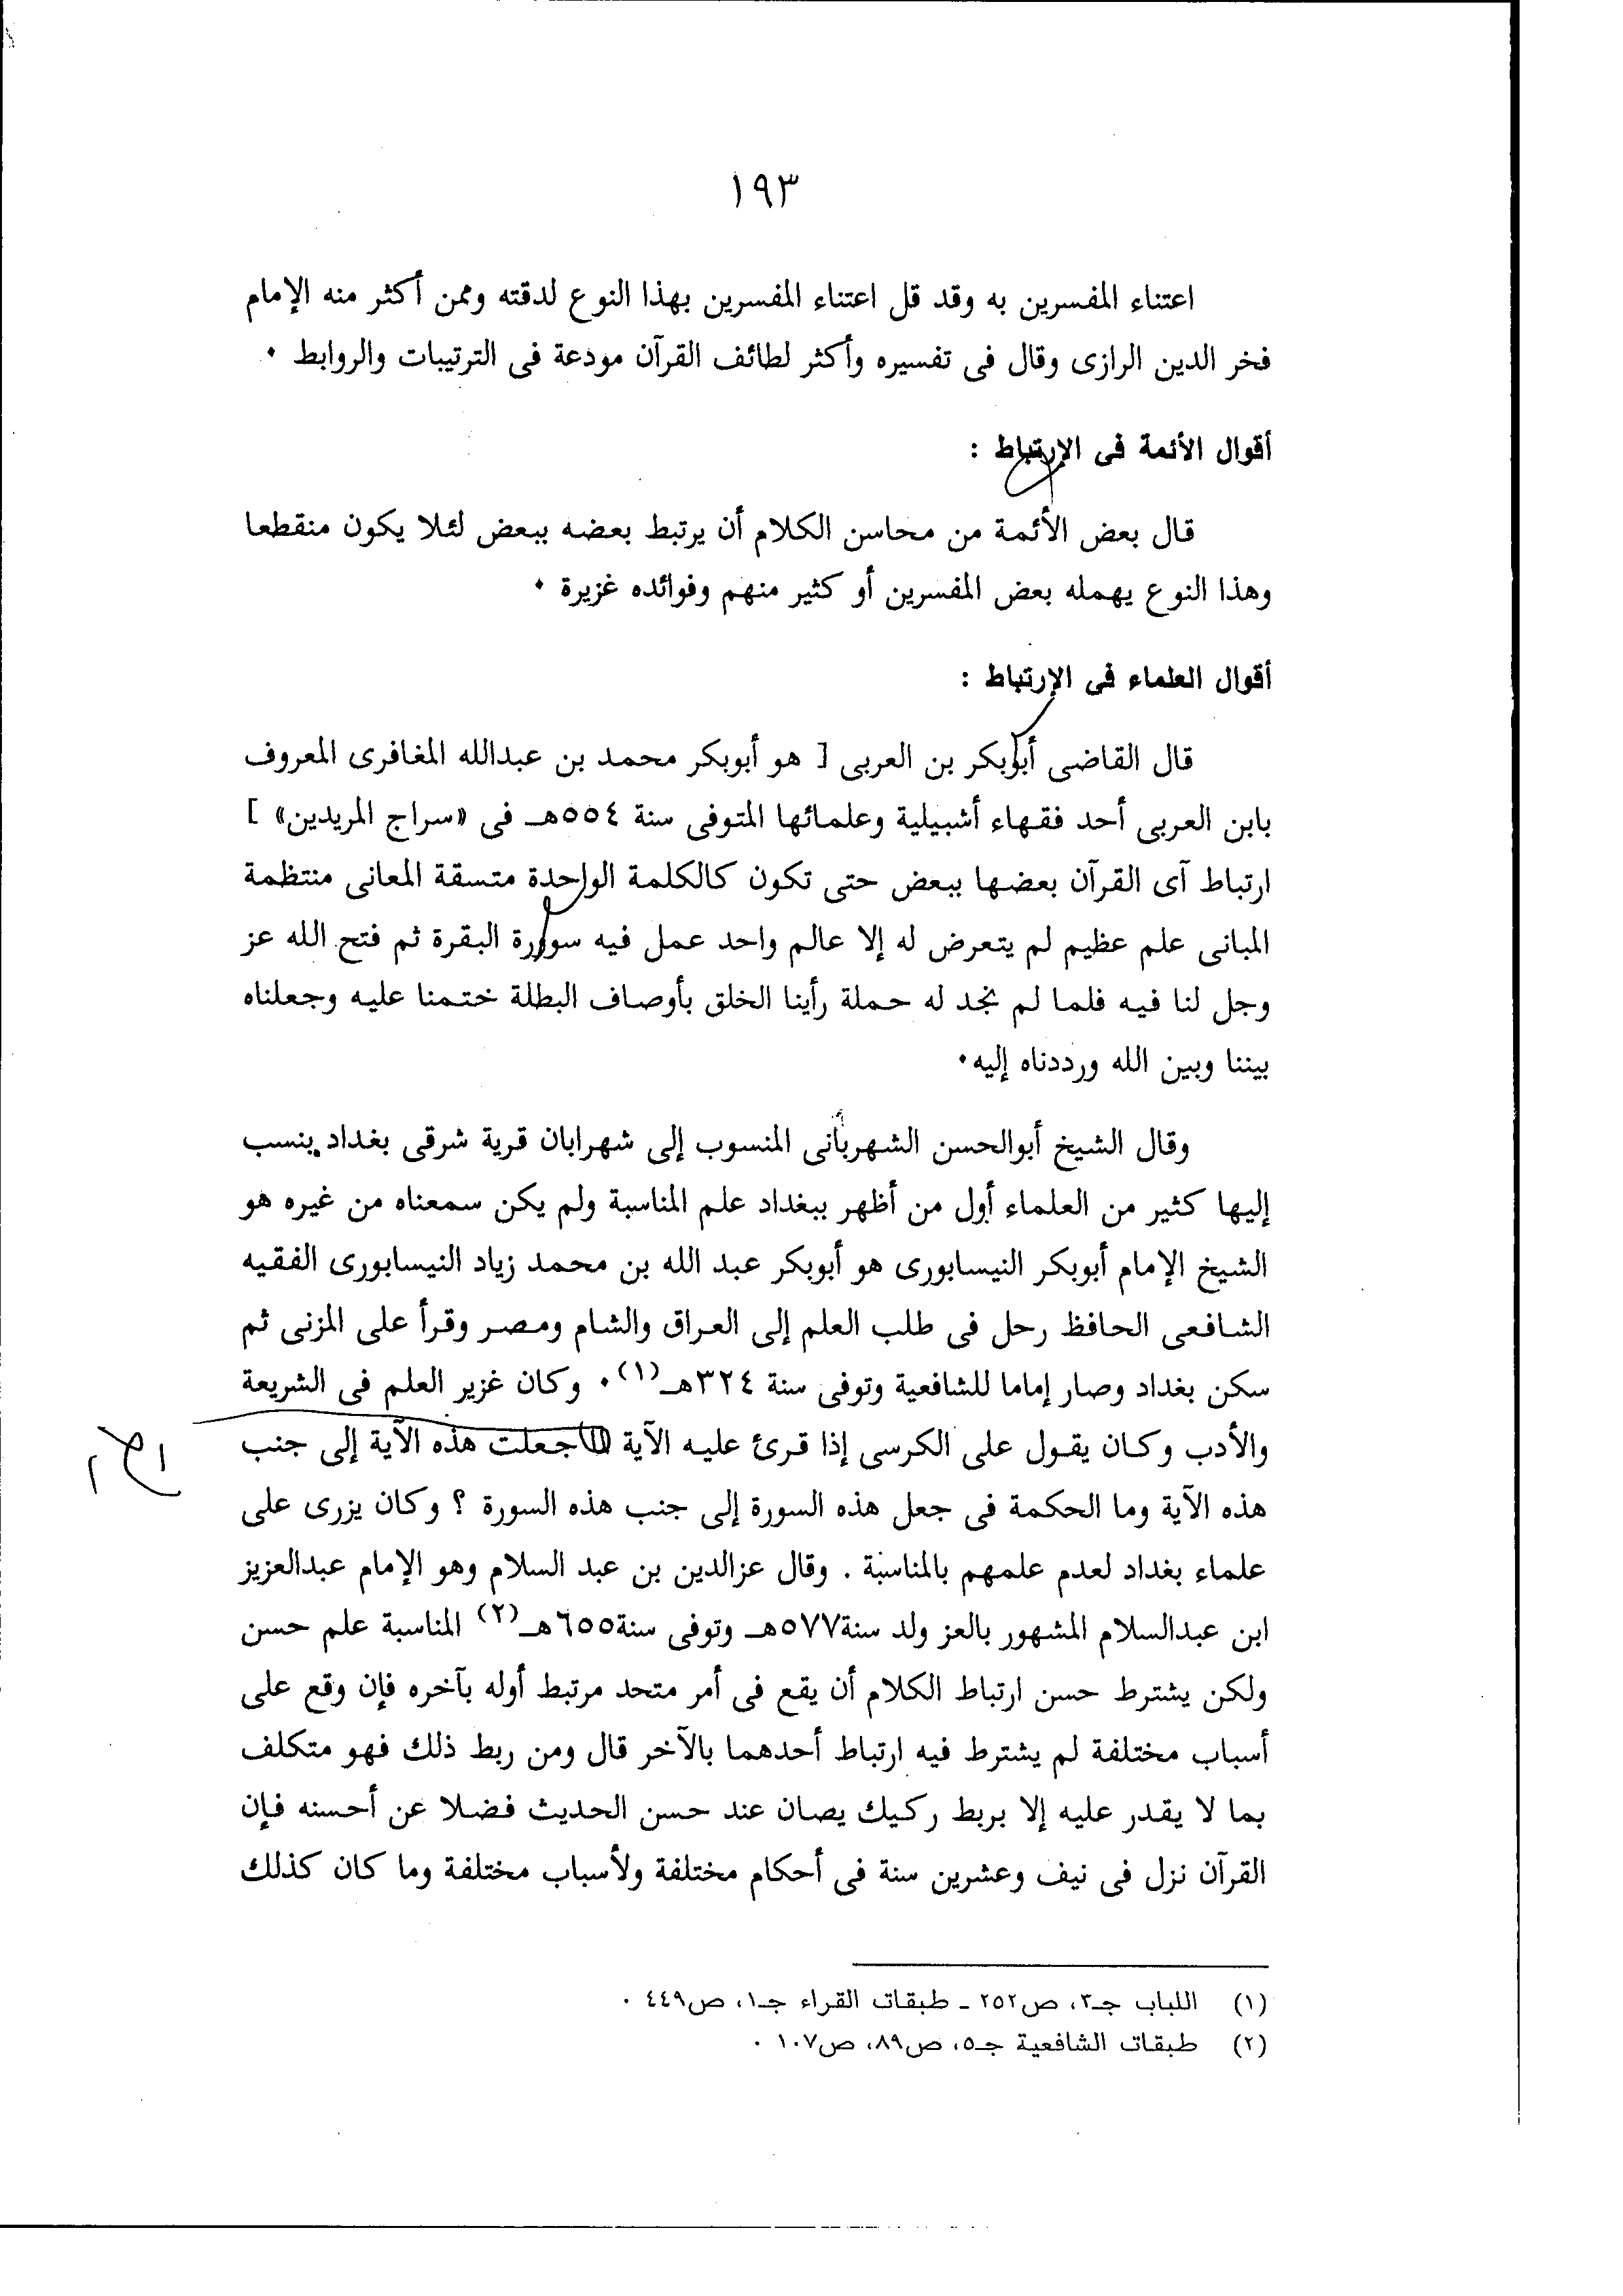 ١٩٣
اعتناء المفسرين به وقد قل اعتناء المفسرين بهذا النوع لدقته وممن أكثر منه الإمام
فخر الدين الرازى وقال فى تفسيره وأكثر لطائف القرآن مودعة فى الترتيبات والروابط ٠
أقوال الأئمة فى الإرتباط :
قال بعض الأئمة من محاسن الكلام أن يرتبط بعضه ببعض لئلا يكون منقطعا
وهذا النوع يهمله بعض المفسرين أو كثير منهم وفوائده غزيرة ٠
أقوال العلماء فى الإرتباط :
قال القاضى أبوبكر بن العربى [ هو أبوبكر محمد بن عبدالله المغافرى المعروف
بابن العربى أحد فقهاء أشبيلية وعلمائها المتوفى سنة ٥٥٤هـ فى «سراج المريدين» ]
ارتباط آى القرآن بعضها ببعض حتى تكون كالكلمة الواحدة متسقة المعانى منتظمة
المبانى علم عظيم لم يتعرض له إلا عالم واحد عمل فيه سورة البقرة ثم فتح الله عز
وجل لنا فيه فلما لم نجد له حملة رأينا الخلق بأوصاف البطلة ختمنا عليه وجعلناه
بيننا وبين الله ورددناه إليه٠
وقال الشيخ أبوالحسن الشهربانى المنسوب إلى شهرابان قرية شرقى بغداد ينسب
إليها كثير من العلماء أول من أظهر ببغداد علم المناسبة ولم يكن سمعناه من غيره هو
الشيخ الإمام أبوبكر النيسابورى هو أبوبكر عبد الله بن محمد زياد النيسابورى الفقيه
الشافعى الحافظ رحل فى طلب العلم إلى العراق والشام ومصر وقرأ على المزنى ثم
سكن بغداد وصار إماما للشافعية وتوفى سنة ٣٢٤هـ(١)٠ وكان غزير العلم فى الشريعة
والأدب وكان يقول على الكرسى إذا قرئ عليه الآية جعلت هذه الآية إلى جنب
هذه الآية وما الحكمة فى جعل هذه السورة إلى جنب هذه السورة ؟ وكان يزرى على
علماء بغداد لعدم علمهم بالمناسبة . وقال عزالدين بن عبد السلام وهو الإمام عبدالعزيز
ابن عبدالسلام المشهور بالعز ولد سنة٥٧٧هـ وتوفى سنة٦٥٥هـ(٢) المناسبة علم حسن
ولكن يشترط حسن ارتباط الكلام أن يقع فى أمر متحد مرتبط أوله بآخره فإن وقع على
أسباب مختلفة لم يشترط فيه ارتباط أحدهما بالآخر قال ومن ربط ذلك فهو متكلف
بما لا يقدر عليه إلا بربط ركيك يصان عند حسن الحديث فضلا عن أحسنه فإن
القرآن نزل فى نيف وعشرين سنة فى أحكام مختلفة ولأسباب مختلفة وما كان كذلك
(١) اللباب جـ٣، ص٢٥٢ ـ طبقات القراء جـ١، ص٤٤٩ ٠
(٢) طبقات الشافعية جـ٥، ص٨٩، ص١٠٧ ٠